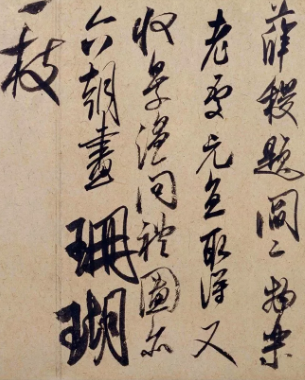 薛稷題閻二物樂
老處元直取得又
收景溫問禮圖亦
六朝畫珊瑚
一枝